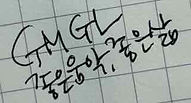 GMGL
좋은음악, 좋은삶